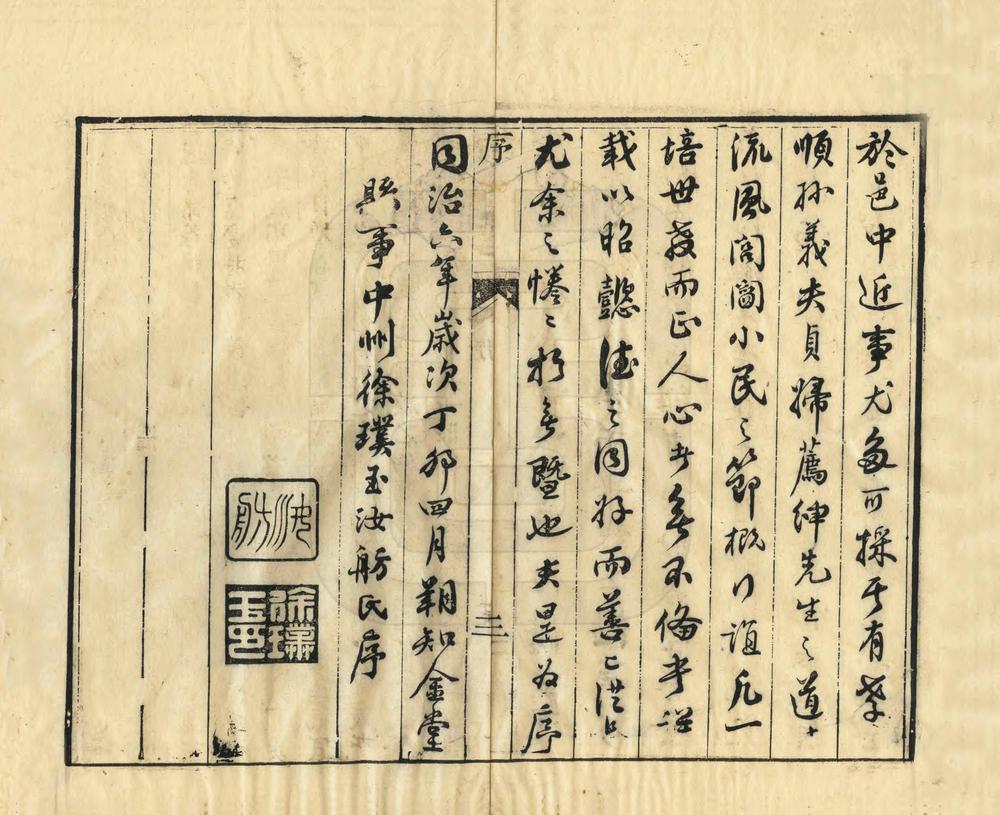 於邑中近事尤多可採其有孝子
順孫義夫貞婦薦紳先生之道
流風閭閻小民之節概行誼凡一
培世教而正人心者無不備書並
載以昭懿德之同好而善〻從長
尤余之惓〻於無暨也夫是為序
序
三
同治六年歲次丁卯四月朔知金堂
縣事中州徐璞玉汝舫氏序
汝舫
徐璞玉印